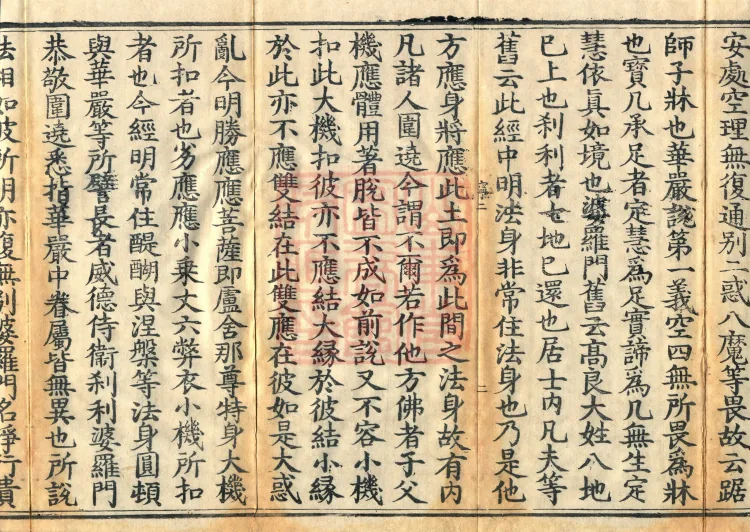 安處空理無復通別二惑八魔等畏故云踞
師子牀也華嚴說第一義空四無所畏爲牀
也寶几承足者定慧爲足實諦爲几無生定
慧依真如境也婆羅門舊云高良大姓八地
已上也刹利者七地已還也居士內凡夫等
舊云此經中明法身非常住法身也乃是他
方應身將應此土即爲此間之法身故有內
凡諸人圍遶今謂不爾若作他方佛者子父
機應體用著脫皆不成如前說又不容小機
扣此大機扣彼亦不應結大緣於彼結小緣
於此亦不應雙結在此雙應在彼如是大惑
亂今明勝應應菩薩即盧舍那尊特身大機
所扣者也劣應應小乘丈六弊衣小機所扣
者也今經明常住醍醐與涅槃等法身圓頓
與華嚴等所譬長者威德侍衞刹利婆羅門
恭敬圍遶悉指華嚴中眷屬皆無異也所說
法相如彼所明亦復無別婆羅門名淨行貴